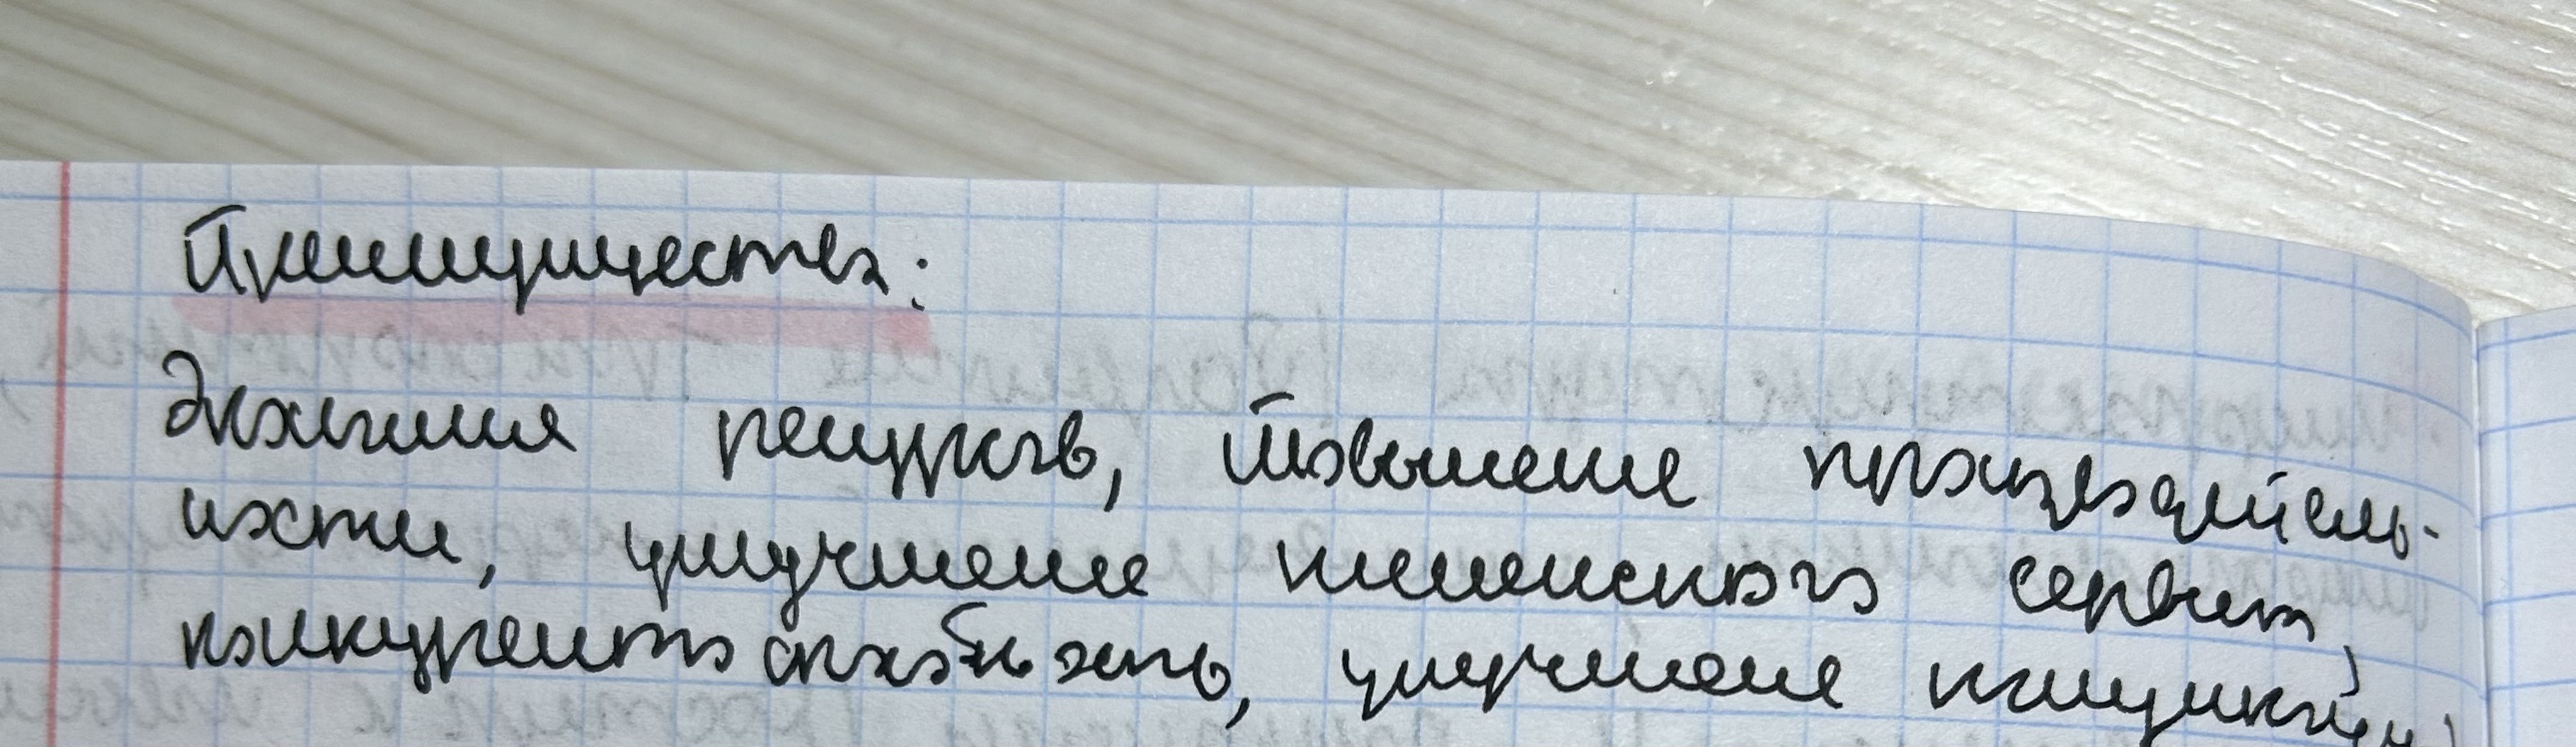 Преимущества:
Экономия ресурсов, Повышение производитель-
ности, улучшение клиентского сервиса,
конкурентоспособность, улучшение